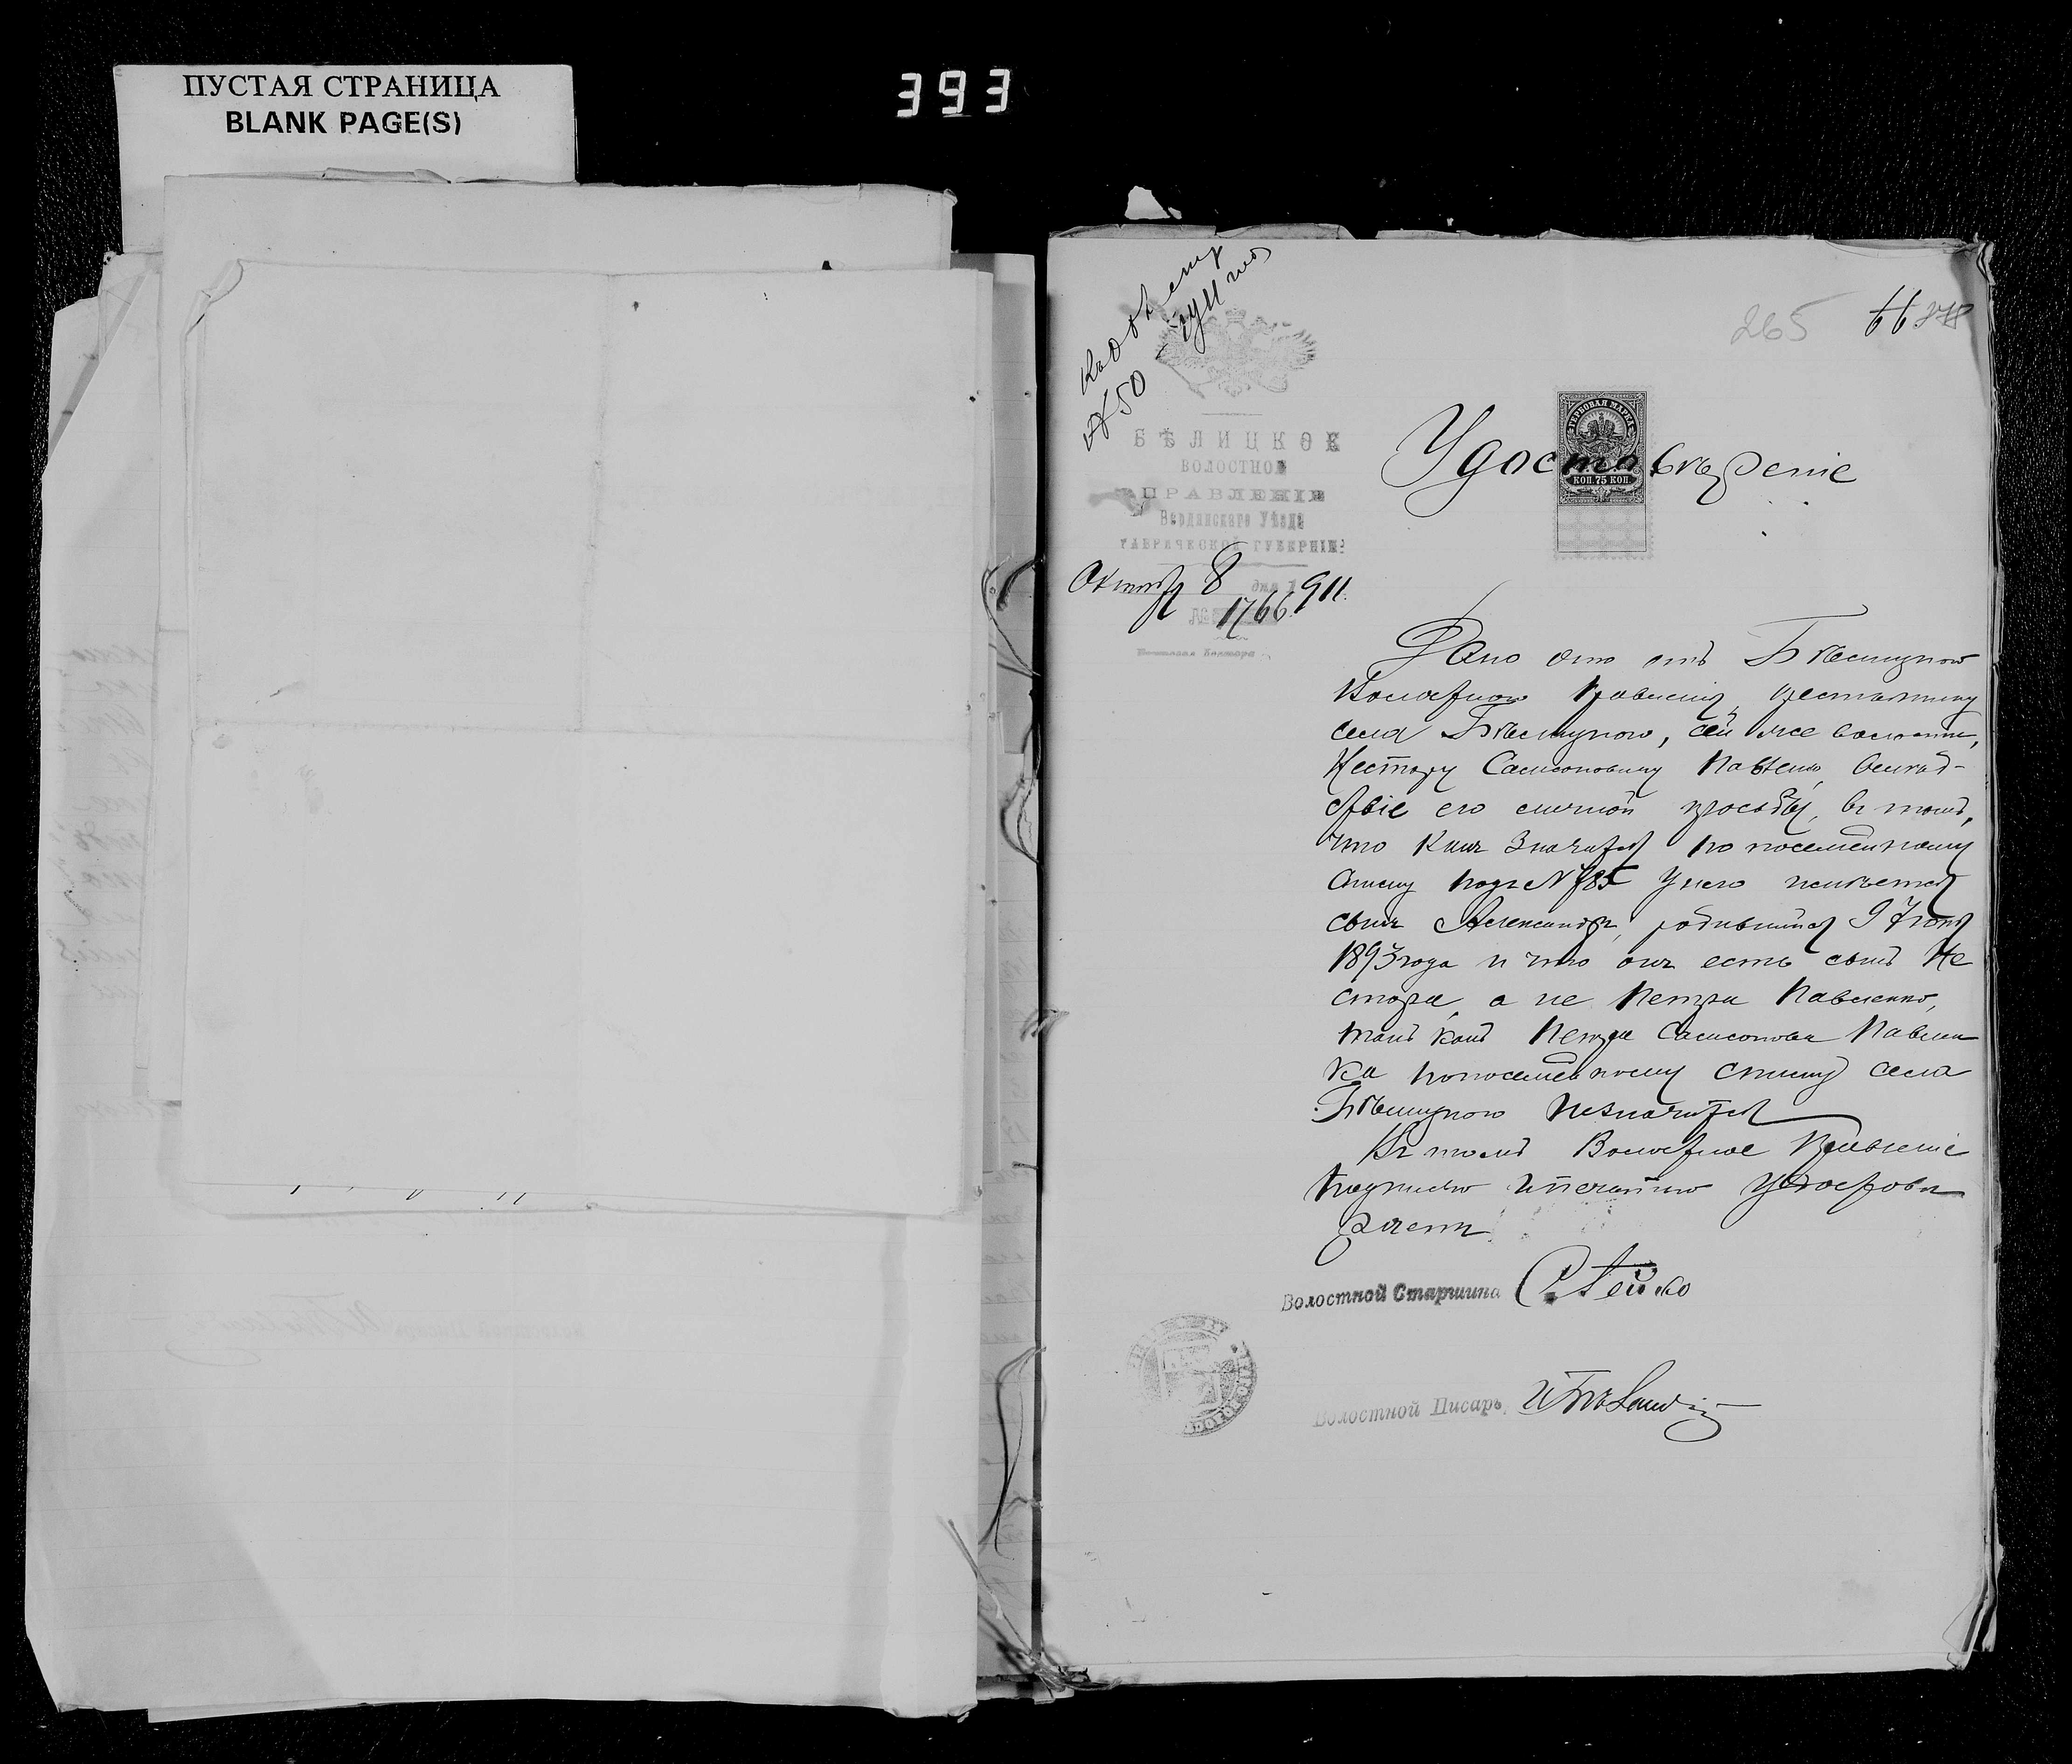 ПУСТАЯ СТРАНИЦА
BLANK PAGE(S)
393
265
№ 50
БѢЛИЦКОЕ
ВОЛОСТНОЕ
ПРАВЛЕНІЕ
Бердянскаго Уѣзда
ТАВРИЧЕСКОЙ ГУБЕРНІИ
Октября 8 дня 1911.
№ 1766
ГЕРБОВАЯ МАРКА
КОП. 75 КОП.
Удостовѣреніе
Дано это отъ
Волостного Правленія, крестьянину
села сей же волости,
Нестору Самсоновичу Павленко, вслѣд-
ствіе его личной просьбы, въ томъ,
что какъ значится по посемейному
списку подъ № 785 у него имѣется
сынъ Александръ, родившійся 9 Іюня
1893 года и что онъ есть сынъ Не
стора, а не Петра Павленко,
такъ какъ Петра Самсонова Павлен
ка по посемейному списку села
не значится
Въ томъ Волостное Правленіе
подписью и печатью удостовѣ
ряетъ
Волостной Старшина
Волостной Писарь